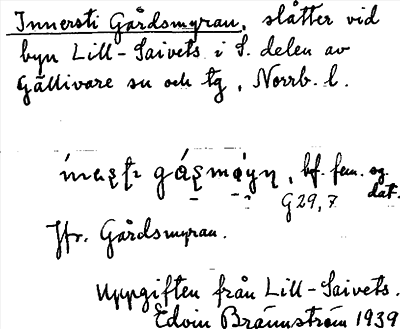 Innersti Gårdsmyran, slåtter vid
byn Lill-Saivets i S. delen av
Gällivare sn och tg, Norrb. l.
bf. fem. og.
dat.
G 29, 7
Jfr. Gårdsmyran.
Uppgiften från Lill-Saivets.
Edvin Brännström 1939